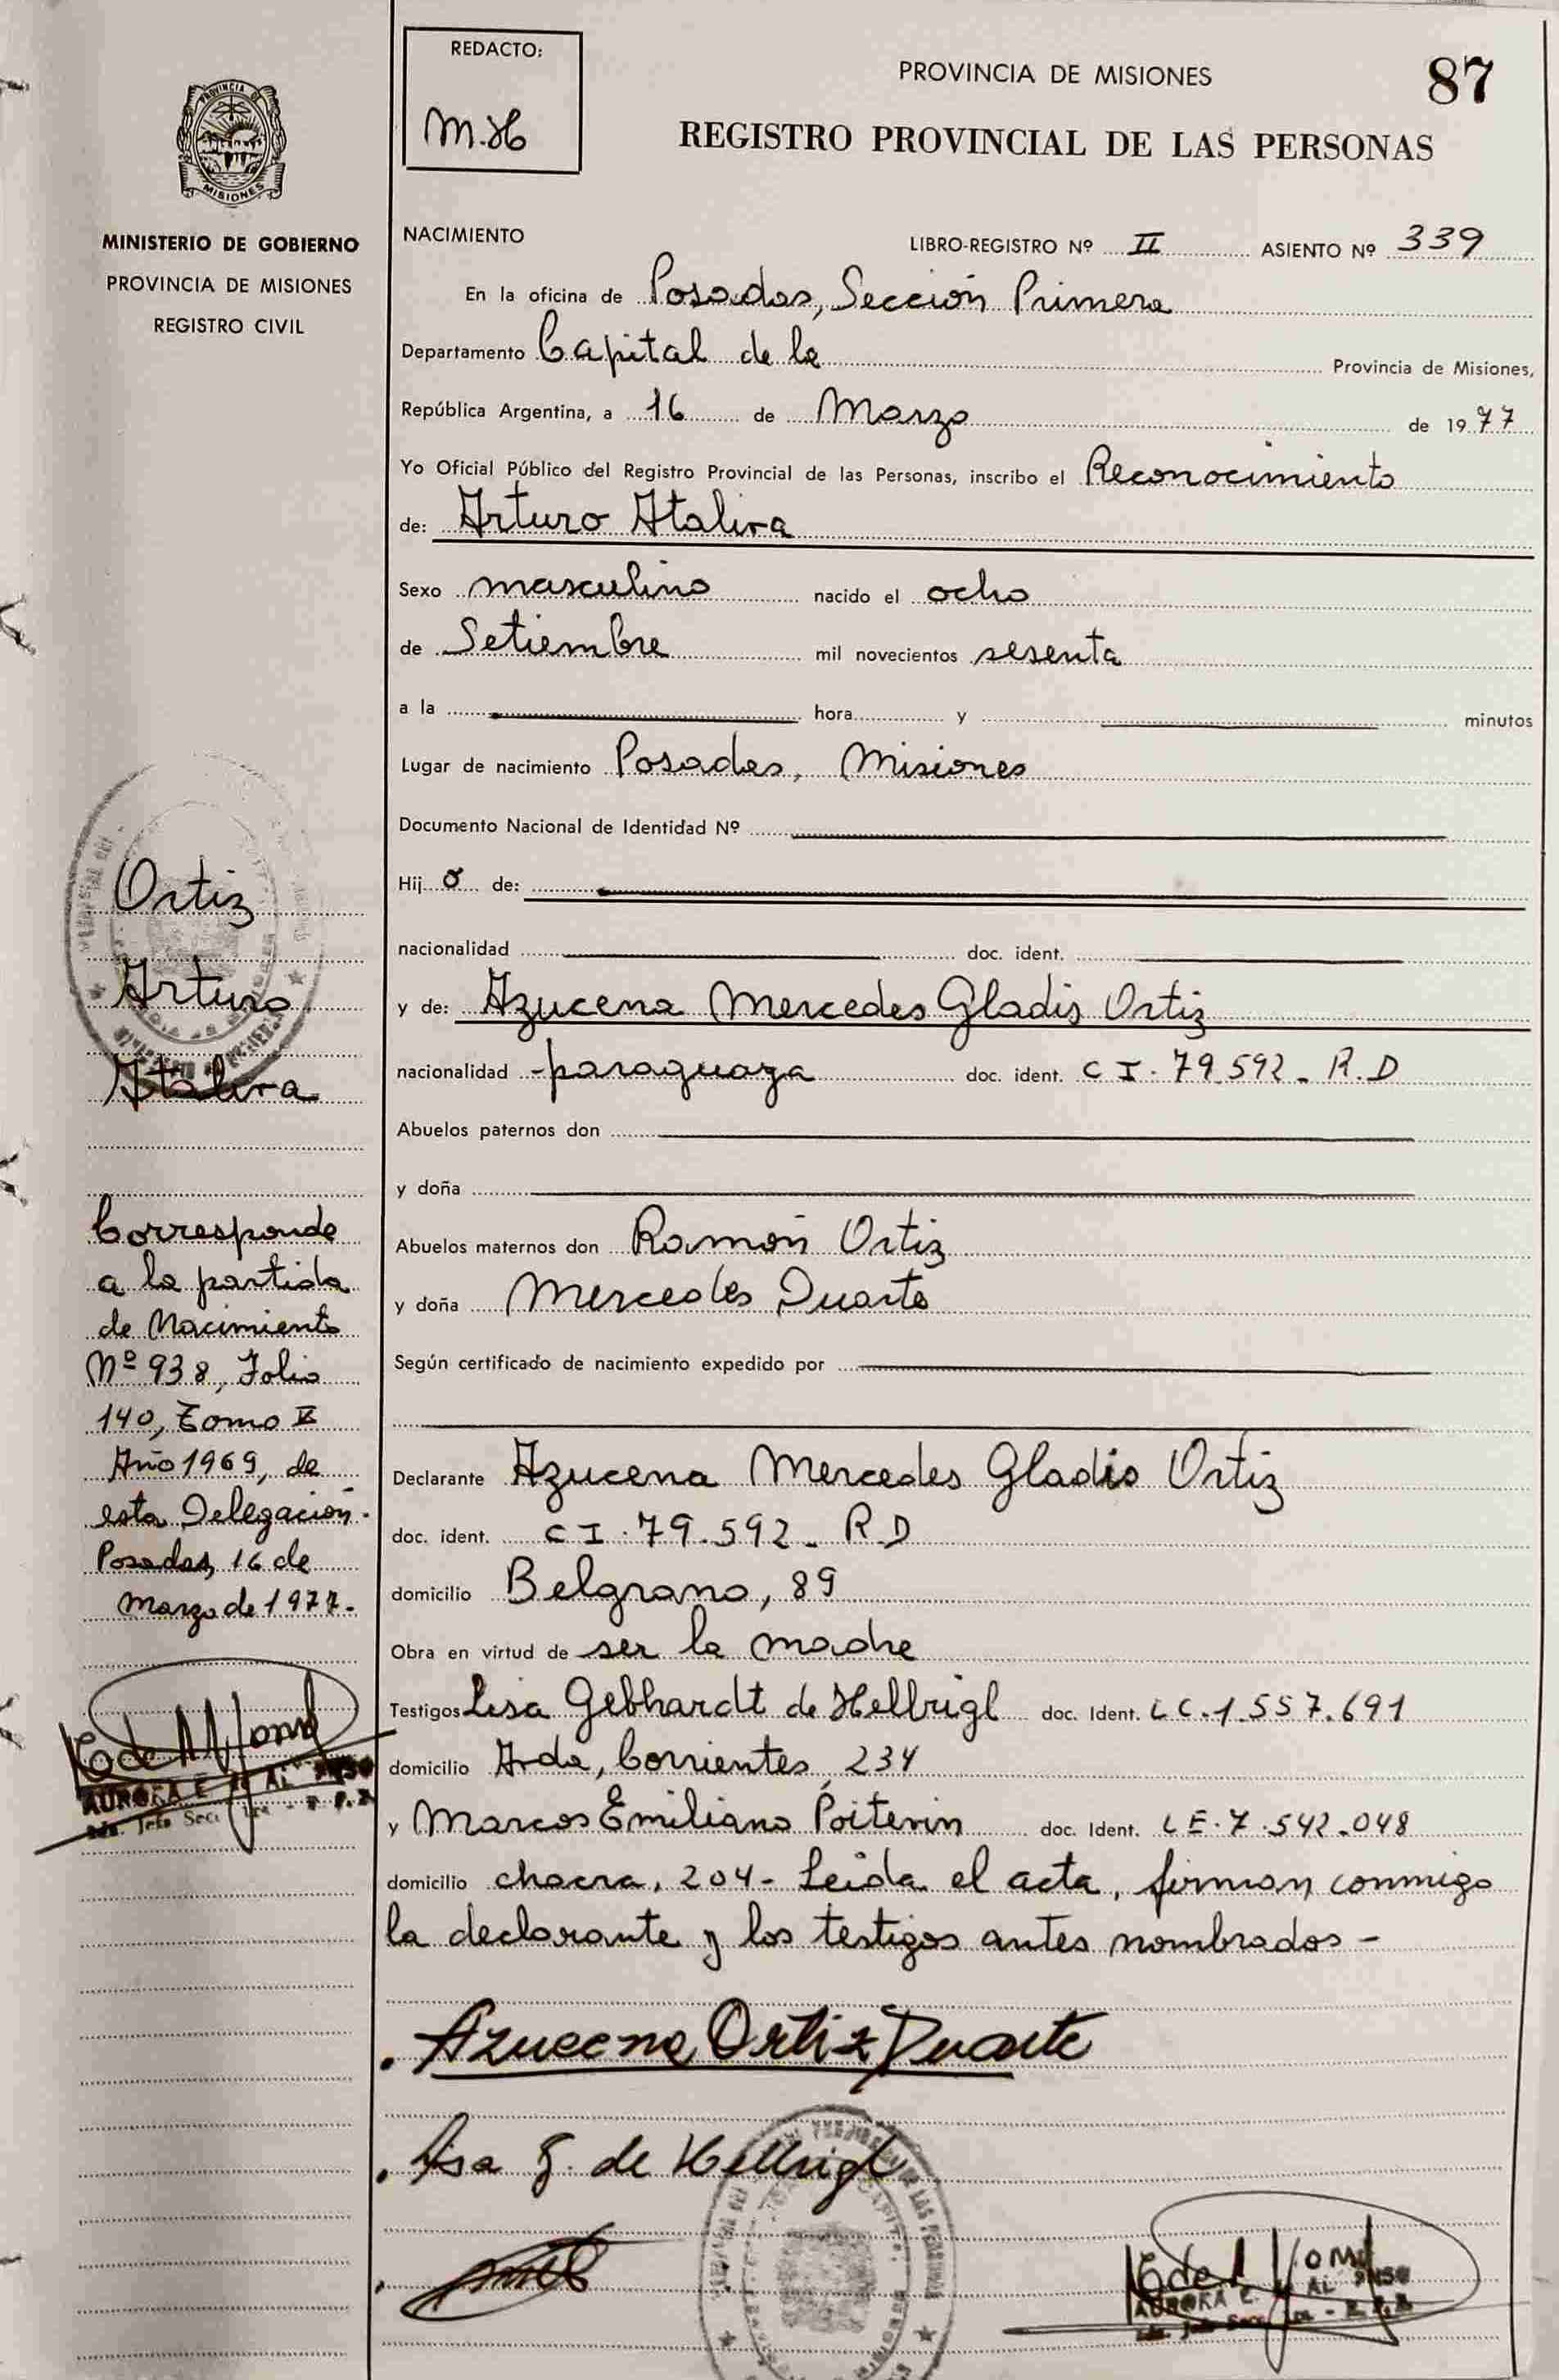 REDACTO:
M.H
PROVINCIA DE MISIONES
87
REGISTRO PROVINCIAL DE LAS PERSONAS
PROVINCIA DE
MISIONES
MINISTERIO DE GOBIERNO
PROVINCIA DE MISIONES
REGISTRO CIVIL
NACIMIENTO
LIBRO-REGISTRO Nº II ASIENTO Nº 339
En la oficina de Posadas, Sección Primera
Departamento Capital de la Provincia de Misiones,
República Argentina, a 16 de Marzo de 1977
Yo Oficial Público del Registro Provincial de las Personas, inscribo el Reconocimiento
de: Arturo Ataliva
Sexo masculino nacido el ocho
de Setiembre mil novecientos sesenta
a la hora y minutos
Lugar de nacimiento Posadas, Misiones
Documento Nacional de Identidad Nº
Hijo de:
nacionalidad doc. ident.
y de: Azucena Mercedes Gladis Ortiz
nacionalidad paraguaya doc. ident. CI. 79.592 - R.D
Abuelos paternos don
y doña
Abuelos maternos don Ramón Ortiz
y doña Mercedes Duarte
Según certificado de nacimiento expedido por
Declarante Azucena Mercedes Gladis Ortiz
doc. ident. CI. 79.592 - R.D
domicilio Belgrano, 89
Obra en virtud de ser la madre
Testigos Lisa Gebhardt de Hellrigl doc. Ident. LC. 1.557.691
domicilio Avda, Corrientes, 234
y Marcos Emiliano Poitevin doc. Ident. LE. 7.542.048
domicilio chacra, 204 - Leída el acta, firman conmigo
la declarante y los testigos antes nombrados -
Azucena Ortiz Duarte
Lisa G. de Hellrigl
AURORA E.
Ortiz
Arturo
Ataliva
Corresponde
a la partida
de Nacimiento
Nº 938, Folio
140, Tomo II
Año 1969, de
esta Delegación.
Posadas, 16 de
marzo de 1977.
AURORA E.